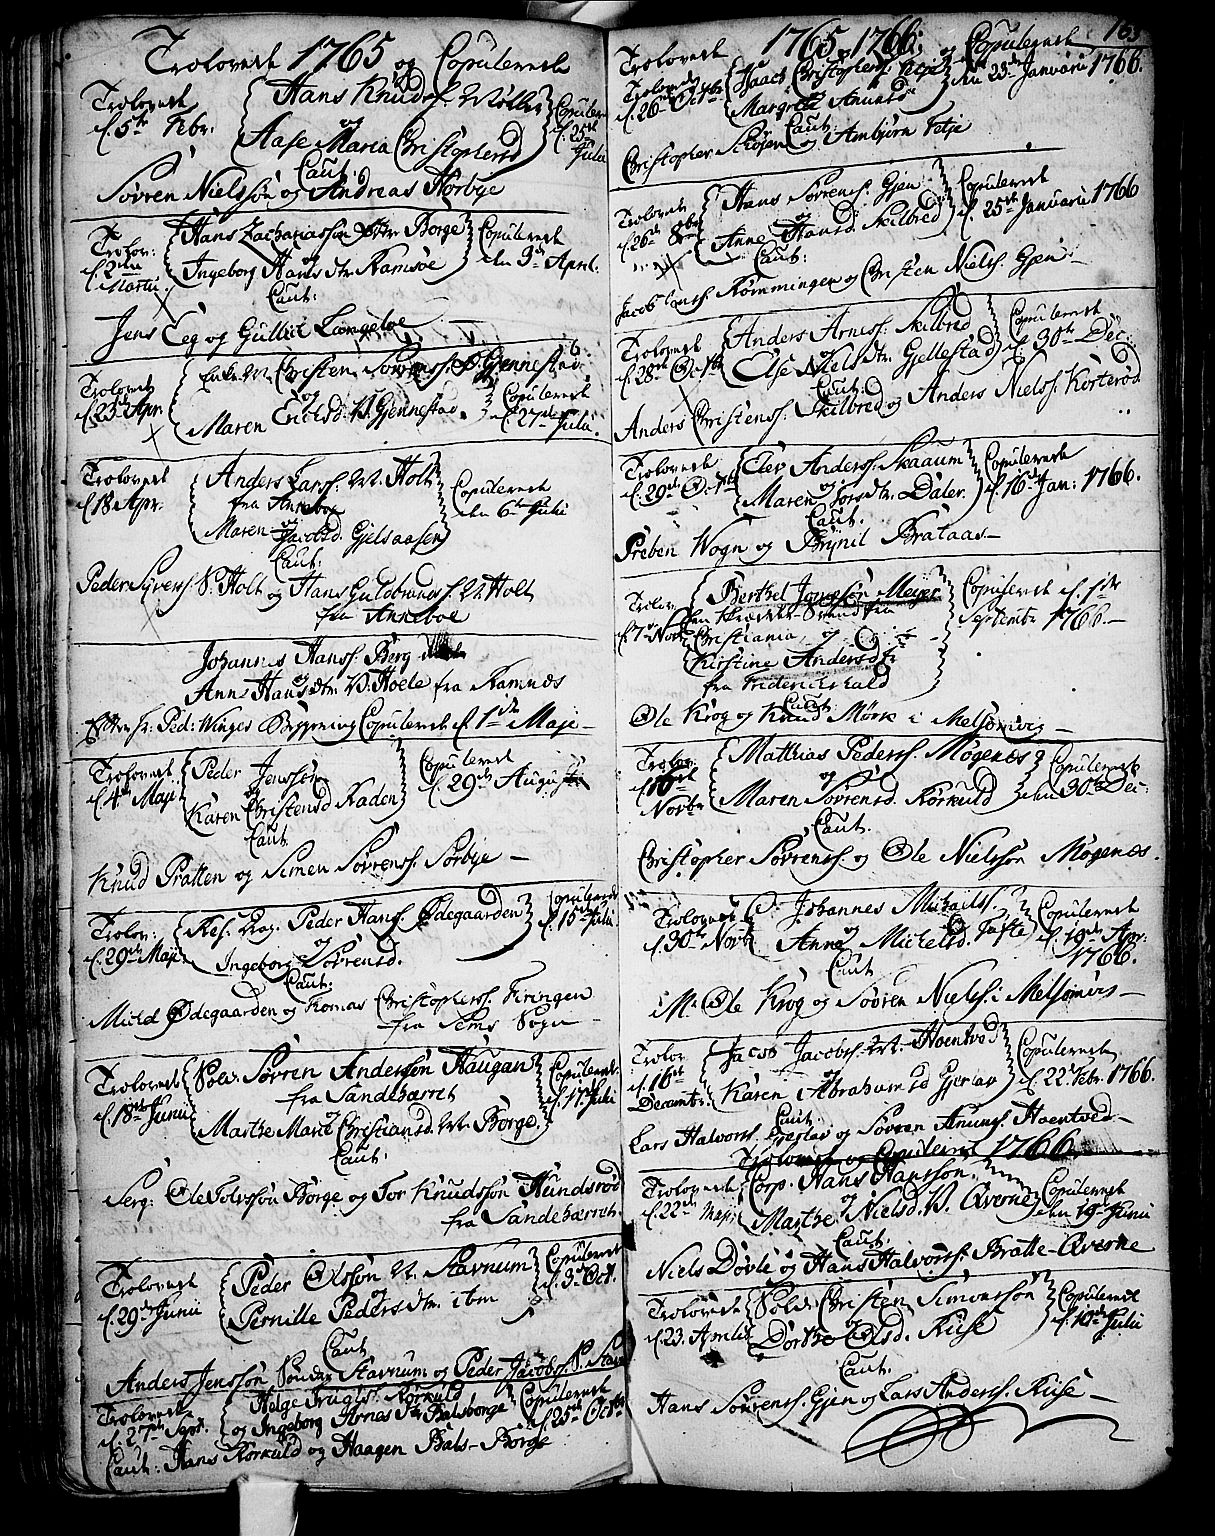 Trolovede 1765 og Copulerede
Trolovede d. 5te Febr:
Hans Knuds. Møller
og
Aase Maria Christophersd
Copulered d. 25de Julii
Caut:
Søvren Nielssøn og Andreas Horbye
Trolov: d. 2den Martii
Hans Zachariassøn Borge
og
Ingeborg Hans dtr Ramsøe
Copulerede den 9de April:
Caut:
Jens Eeg og Gulbit Langeloe
Trolovede d. 23de Apr.
Christen Sørenss. Gjennestad
og
Maren Erichsd. V. Gjennestad
Copulerede d. 27de Julii.
Trolovede d. 18 Apr.
Anders Larss. V. Holt
fra Anneboe
og
Maren Jacobsd. Gjelsaasen
Copulerede den 6te Julii
Caut:
Peder Syverss. S. Holt og Hans Guldbrandss. V. Holt
fra Anneboe
Johannes Hanss. Berg
og
Ann Hans dtr V. Hoele fra Ramnæs
Efter Hr: Ped: Winges Copulerede d. 1ste Maji
Trolovede d. 4de Maji
Peder Jenssøn
og
Karen Christensd Raden
Copulerede d. 29de August
Caut.
Knud Pratten og Simen Sørenss. Sørbye
Trolov: d. 29de Maji
Res. Drag. Peder Hanss. Ødegaarden
og
Ingeborg Sørensd.
Copulerede d. 15de Julii
Caut.
Michel Ødegaarden og Tomas Christopherss. Firingen
fra Sems Sogn
Trolovede d. 18de Junii
Sold. Søvren Anderssøn Haugan
fra Sandehærret
og
Marthe Marie Christiansd. V. Borge.
Copulerede d. 17de Julii
Caut:
Serg: Ole Tolvssøn Borge og Tor Knudssøn Hundsrød
fra Sandehærret.
Trolovede d. 29de Junii
Peder Olssøn V. Stavnum
og
Pernille Peders dtr. ibm
Copulerede d. 3de Oct.
Caut.
Anders Jenssøn Søndre Stavnum og Peder Jacobss. N. Stavn
Trolovede d. 27de Sept.
Helge Truglss. Rørkuld
og Ingeborg Arnes dtr Balsborge
Copulerede d. 25de Octbr
Caut: Hans Rorkuld og Haagen Bals-Borge
163
1765 og 1766.
Trolovede og Copulerede
Trolovede d. 26de Octbr
Isaac Christopherss. Fetje
og
Margrete Anundsd
Copulerede den 23de Januarii 1766.
Caut:
Christopher Schøsen og Ambjørn Fetje
Trolovede d. 26de 8br
Hans Sørenss. Gjen
og
Anne Hansd Skilbred
Copulerede d. 25de Januarii 1766
Caut:
Jacob Rømmingen og Christen Nielss. Gjen
Trolovede d. 28de Octbr
Anders Arness. Skilbred
og
Else Niels dtr. Gjellestad
Copulerede d. 30te Dec:
Caut:
Anders Christenss. Skilbred og Anders Nielss. Korterød
Trolovede d. 29de Octbr
Elev Anderss. Skaaum
og
Maren Jors dtr. Daler.
Copulerede d. 16de Jan: 1766.
Caut.
Preben Wogn og Brynil Brataas
Trolov: d. 7de Novbr
Berthel Jonassøn Meyer
Skrædder-Svend fra
Christiania, og
Kirstine Andersdtr
fra Friderichshald
Copulerede d. 1ste Septembr 1766.
Caut:
Ole Krog og Knud Mørk i Melsomvig
Trolov: d. 16de Novbr
Matthias Pederss. Møgenæs
og
Maren Sørensd. Rørkuld
Copulerede den 30te Dec:
Caut.
Christopher Sørenss. og Ole Nielssøn Møgenæs.
Trolovede d. 30te Novb
Johannes Michailss.
og
Anne Michelsd. Jafle
Copulerede d. 19de Apr: 1766.
Caut
M. Ole Krog og Søvren Nielss. i Melsomvig
Trolov d. 16de Decembr.
Jacob Jacobss. V. Hoentved
og
Karen Abrahamsd Gjerlav
Copulerede d. 22de Febr. 1766.
Caut:
Lars Halvorss. Gjerlav og Søvren Anunss. Hoentved
Trolovede og Copulered 1766.
Trolovede d. 22de Maji
Corp. Hans Hanssøn
og
Marthe Nielsd. V. Qverne
Copulerede den 19de Junii
Caut:
Niels Døvle og Hans Halvorss. Bratte-Qverne
Trolovede d. 23.
Sold. Christen Simonssøn
og
Dorthe Olsd. Riise
Copulerede d. 10de Julii
Caut.
Hans Sørenss. Gjen og Lars Anderss. Riise